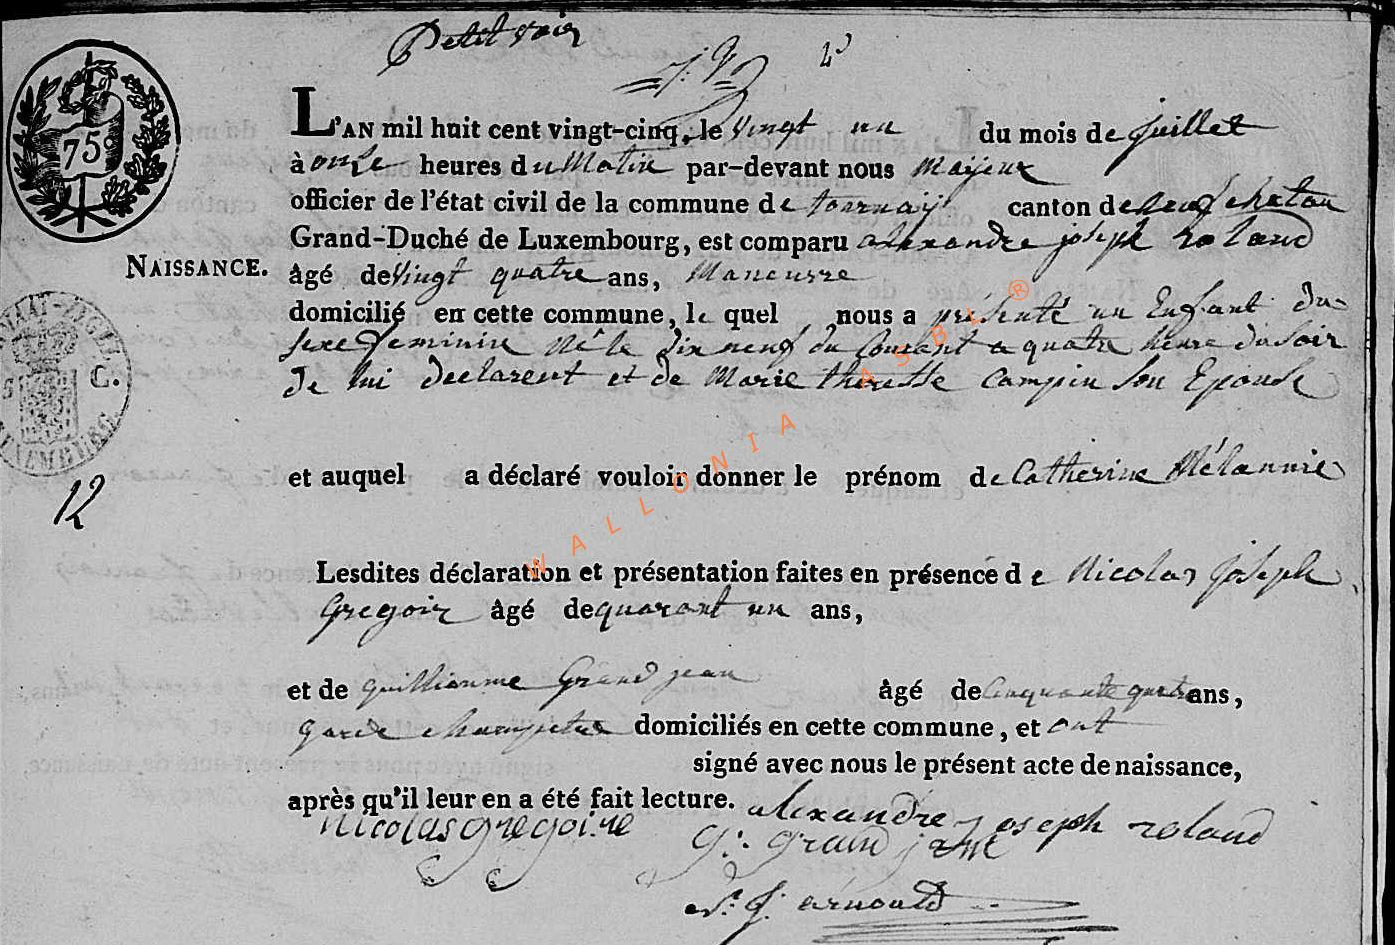 Petit voir
75
L'AN mil huit cent vingt-cinq, le vingt un du mois de juillet
à onse heures du Matin par-devant nous Majeur
officier de l'état civil de la commune de tournay canton de neufchatau
Grand-Duché de Luxembourg, est comparu alexandre joseph roland
NAISSANCE.
âgé de vingt quatre ans, Maneuvre
domicilié en cette commune, le quel nous a présenté un Enfant du
sexe feminin né le dix neuf du Courant a quatre heure du soir
De lui declarent et de Marie theresse Campin son Epouse
G.
12
et auquel a déclaré vouloir donner le prénom de Catherine Mélannie
Lesdites déclaration et présentation faites en présence de Nicolas joseph
Gregoir âgé de quarant un ans,
et de guillionme Grand jean âgé de Cinquante quatre ans,
garde champetre domiciliés en cette commune, et ont
signé avec nous le présent acte de naissance,
après qu'il leur en a été fait lecture.
nicolas gregoire
alexandre joseph roland
g: grand jean
arnould
WALLONIA ASBL ®